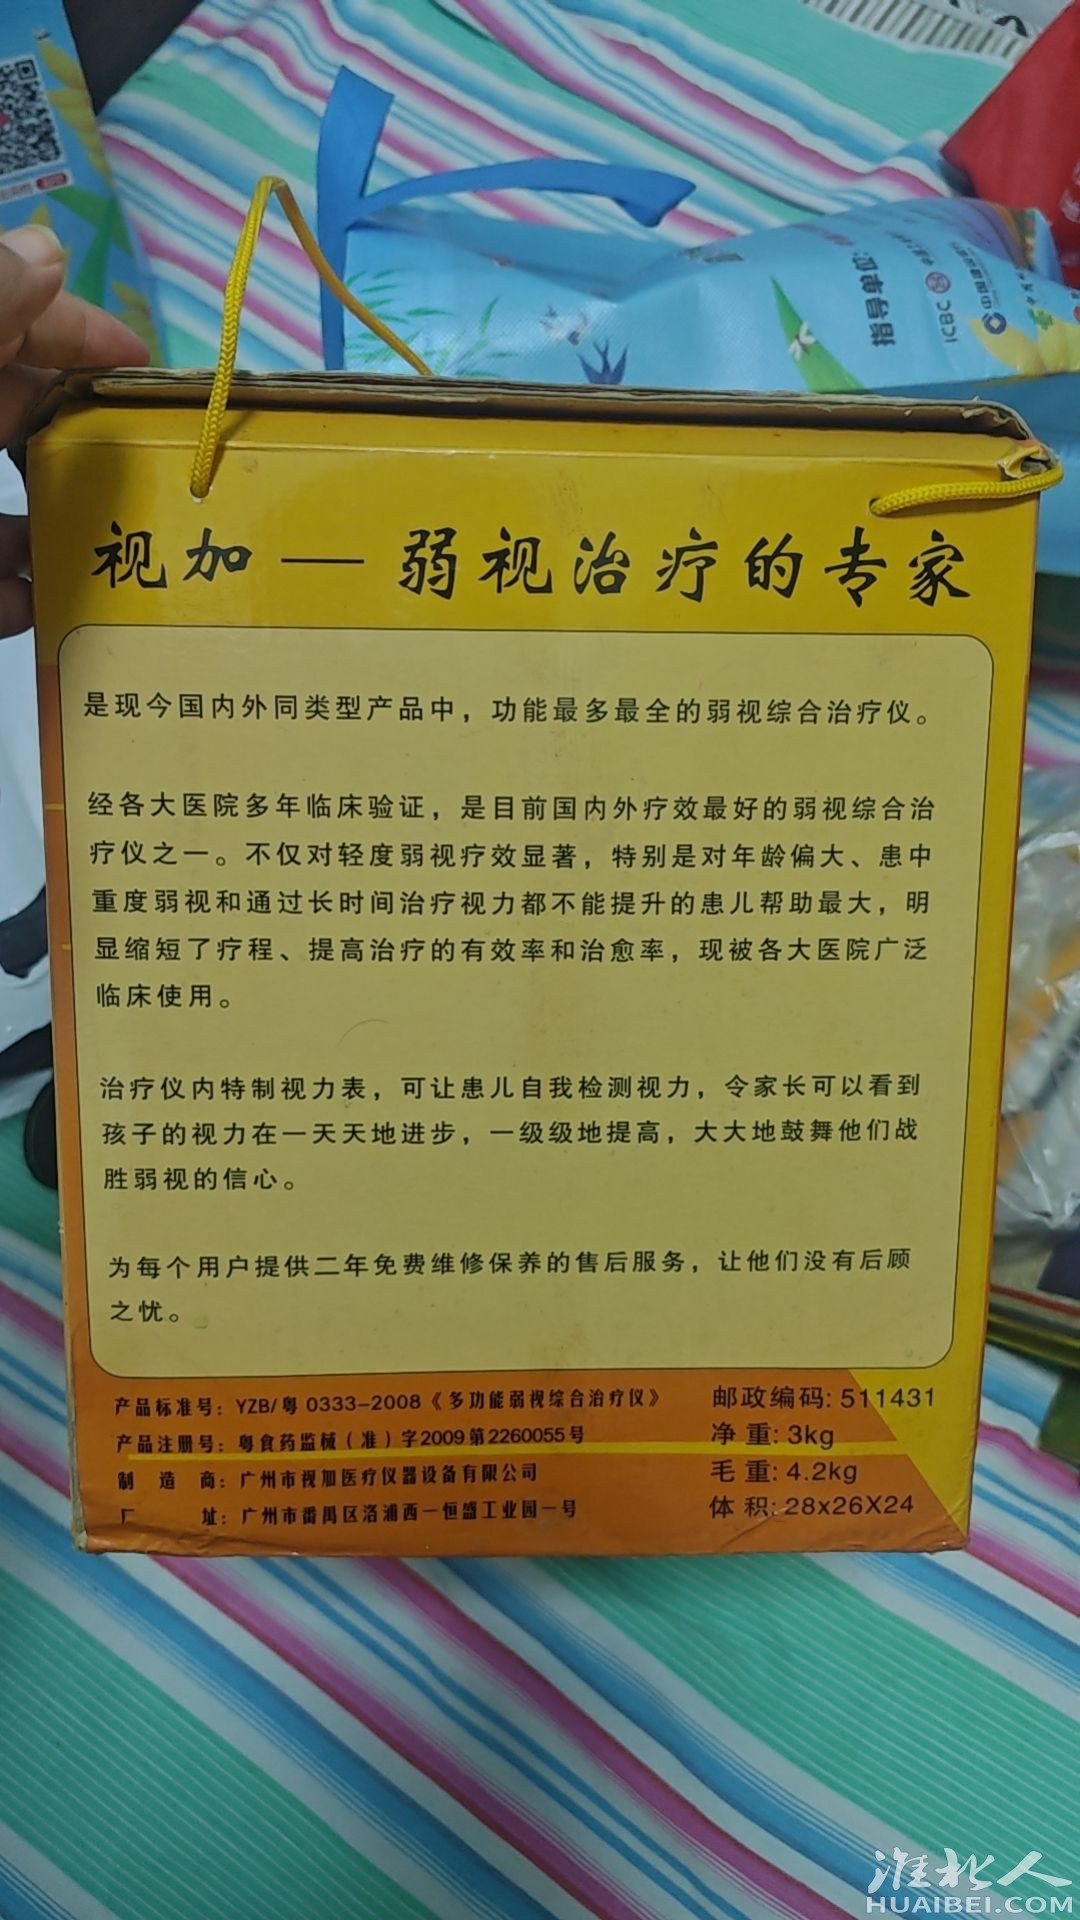 指导单位:
ICBC
视加——弱视治疗的专家
是现今国内外同类型产品中，功能最多最全的弱视综合治疗仪。
经各大医院多年临床验证，是目前国内外疗效最好的弱视综合治
疗仪之一。不仅对轻度弱视疗效显著，特别是对年龄偏大、患中
重度弱视和通过长时间治疗视力都不能提升的患儿帮助最大，明
显缩短了疗程、提高治疗的有效率和治愈率，现被各大医院广泛
临床使用。
治疗仪内特制视力表，可让患儿自我检测视力，令家长可以看到
孩子的视力在一天天地进步，一级级地提高，大大地鼓舞他们战
胜弱视的信心。
为每个用户提供二年免费维修保养的售后服务，让他们没有后顾
之忧。
产品标准号：YZB/粤 0333-2008《多功能弱视综合治疗仪》
产品注册号：粤食药监械（准）字2009第2260055号
制造商：广州市视加医疗仪器设备有限公司
厂址：广州市番禺区洛浦西一恒盛工业园一号
邮政编码: 511431
净 重: 3kg
毛 重: 4.2kg
体 积: 28x26X24
淮北人
HUAIBEI.COM